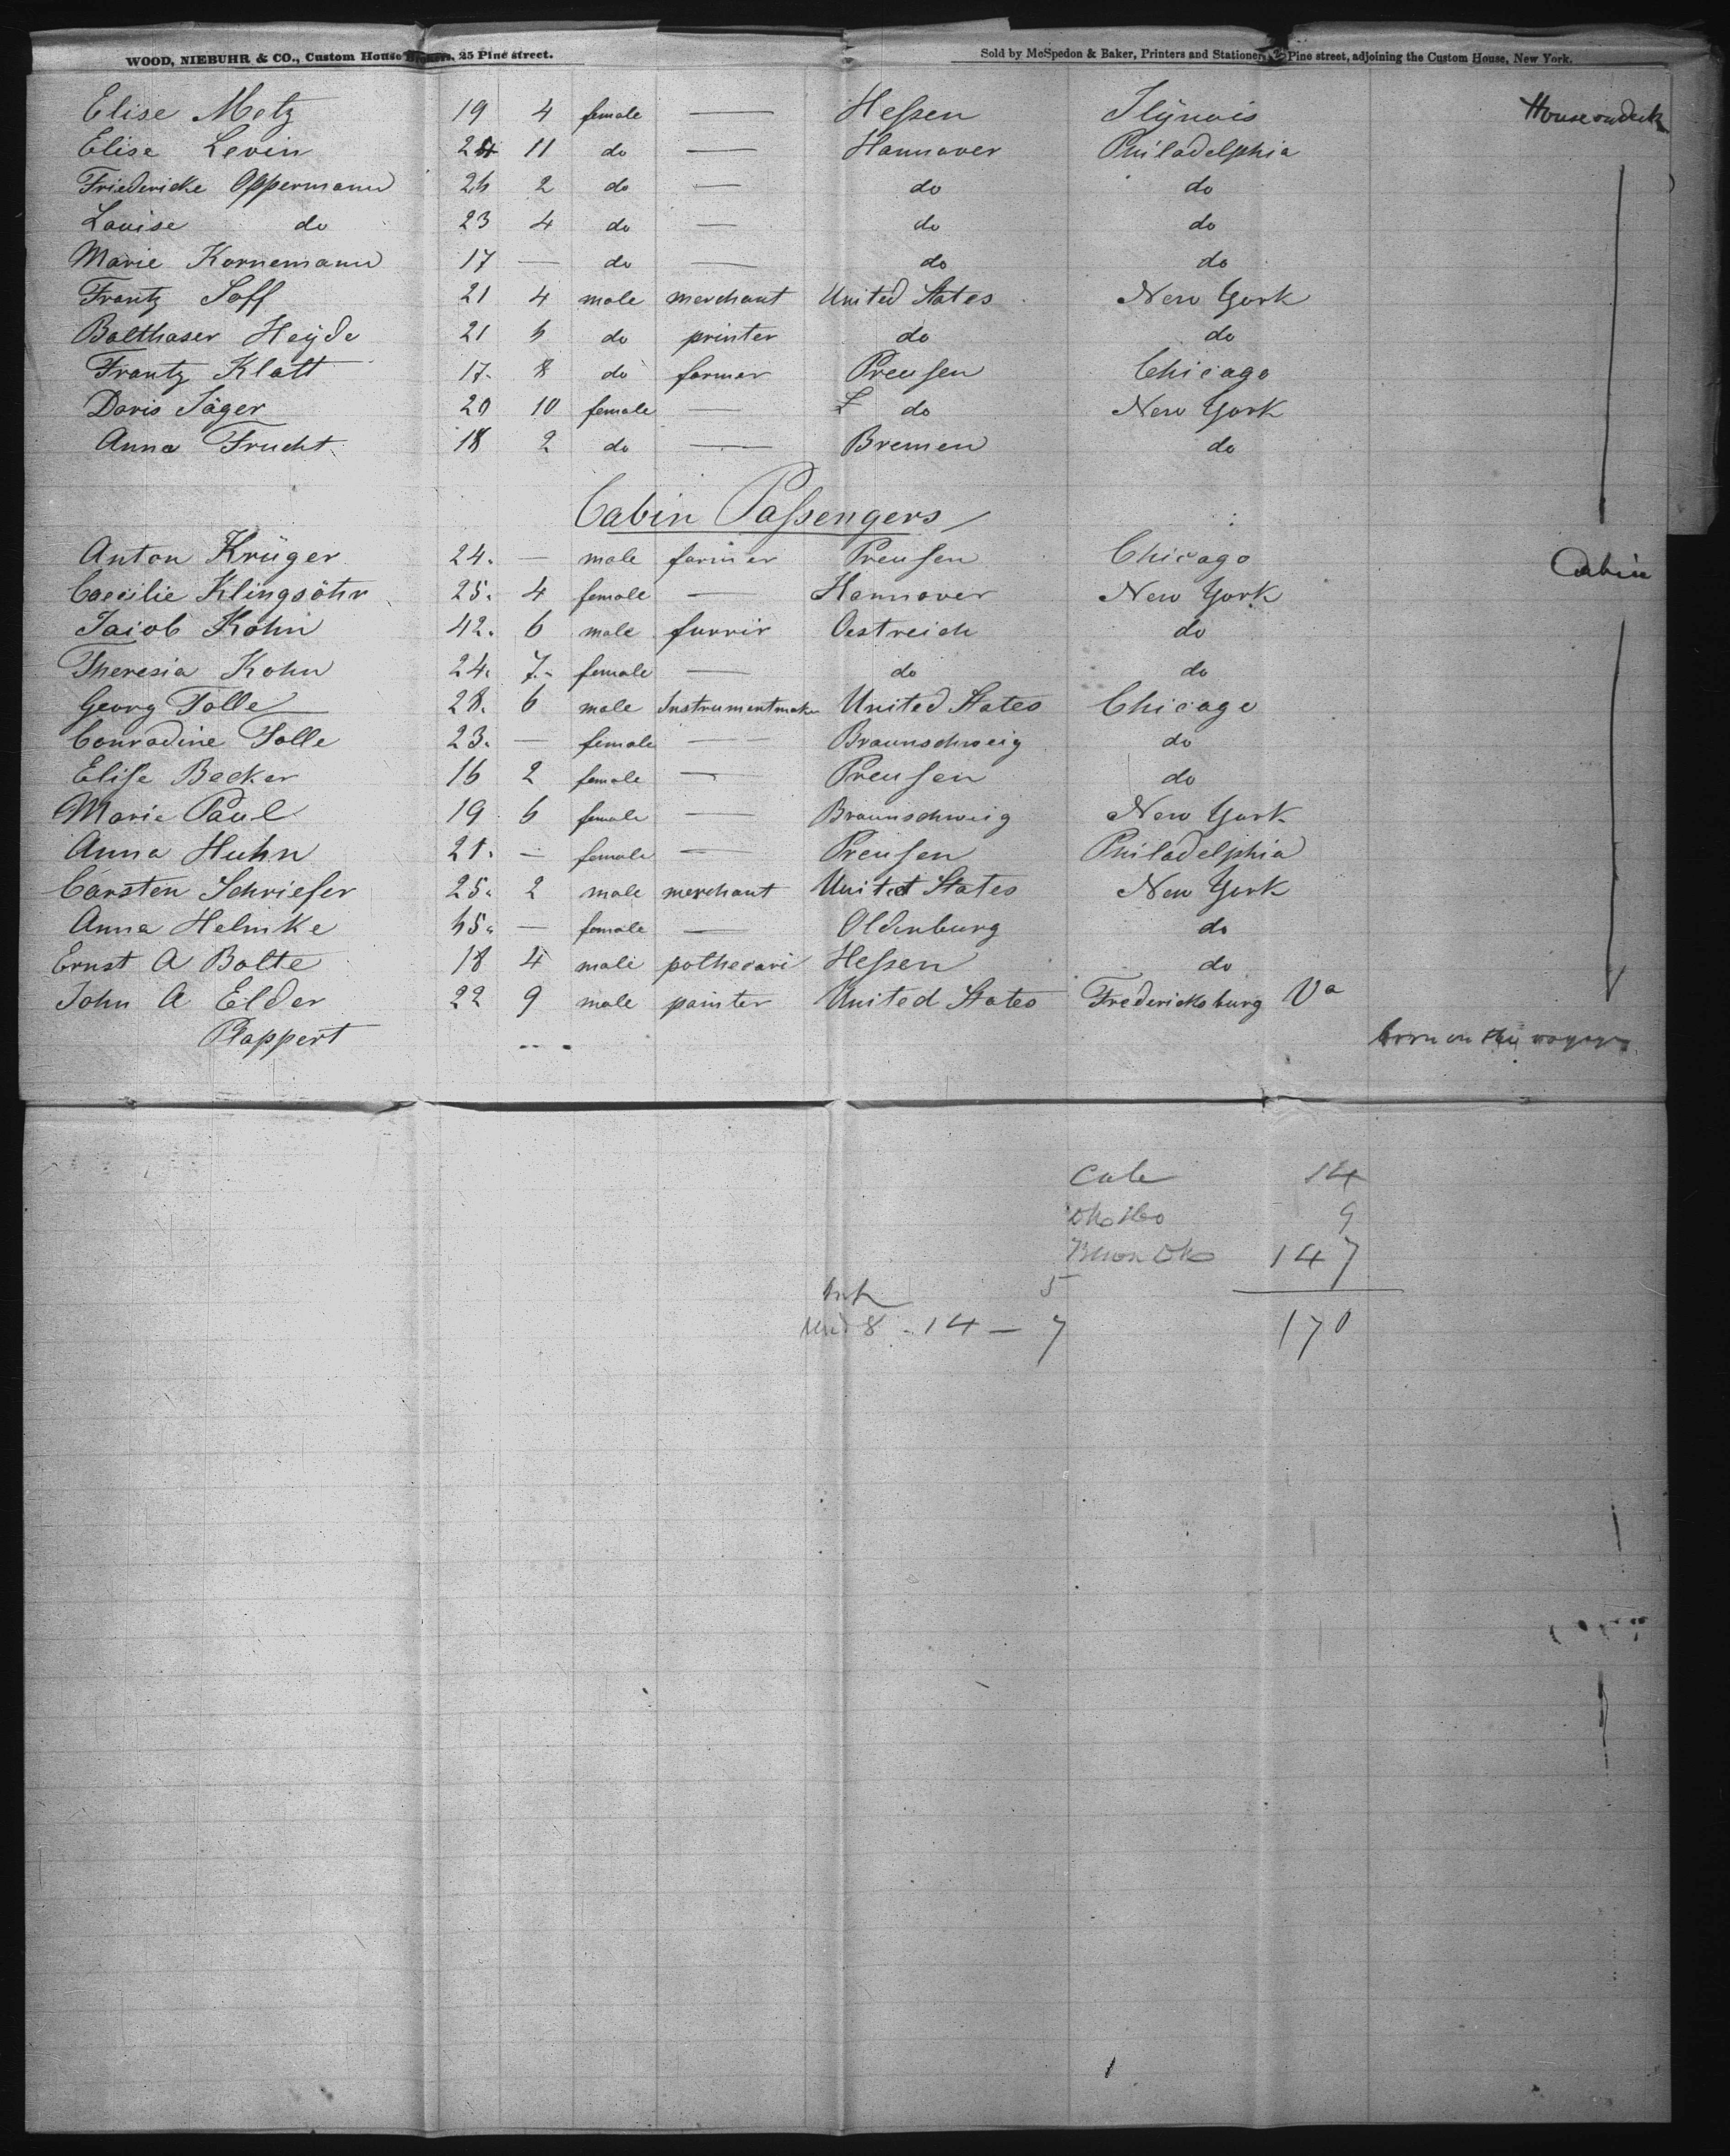 WOOD, NIEBUHR & CO., Custom House Brokers, 25 Pine street. Sold by McSpedon & Baker, Printers and Stationers, 25 Pine street, adjoining the Custom House, New York.
Elise Metz 19 4 female — Hessen Illÿnois House on deck
Elise Levin 24 11 do — Hannover Philadelphia
Friedericke Oppermann 25 2 do — do do
Louise do 23 4 do — do do
Marie Kornemann 17 — do — do do
Frantz Joff 21 4 male merchant United States New York
Balthaser Heÿde 21 5 do printer do do
Frantz Klatt 17. 8 do farmer Preusen Chicago
Doris Jäger 20 10 female — do New York
Anna Frucht 18 2 do — Bremen do
Cabin Passengers
Anton Krüger 24. — male farmer Preusen Chicago Cabin
Caecilie Klingsöhr 25. 4 female — Hannover New York
Jacob Kohn 42. 6 male furrir Oestreich do
Theresia Kohn 24. 7. female — do do
Georg Tolle 28. 6 male Instrumentmaker United States Chicago
Conradine Tolle 23. — female — Braunschweig do
Elise Becker 16 2 female — Preusen do
Marie Paul 19 6 female — Braunschweig New York
Anna Huhn 21. — female — Preusen Philadelphia
Carsten Schriefer 25. 2 male merchant United States New York
Anna Helmke 55. — female — Oldenburg do
Ernst A Bolte 18 4 male pothecari Hessen do
John A Elder 22 9 male painter United States Fredericksburg Va
Plappert born on the voyage
14
9
147
5
8 - 14 — 7 170